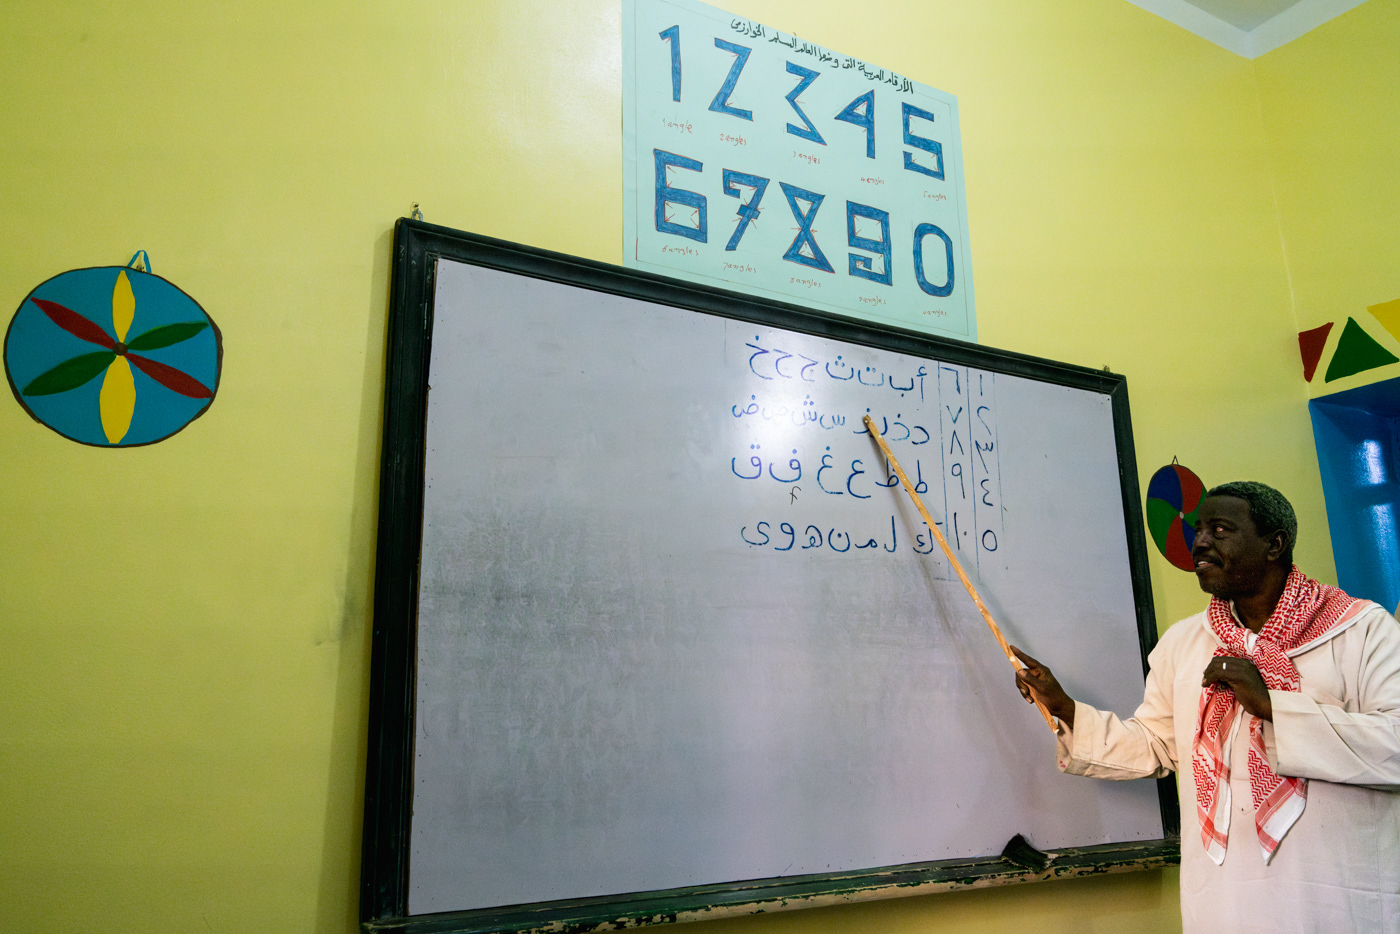 الأرقام العربية التى وضعها العالم المسلم الخوارزمى
1 2 3 4 5
1 angle 2 angles 3 angles 4 angles 5 angles
6 7 8 9 0
6 angles 7 angles 8 angles 9 angles 0 angles
١ ٦ أ ب ت ث ج ح خ
٢ ٧ د ذ ر ز س ش ص ض
٣ ٨
٤ ٩ ط ظ ع غ ف ق
٥ ١٠ ك ل م ن ه و ي